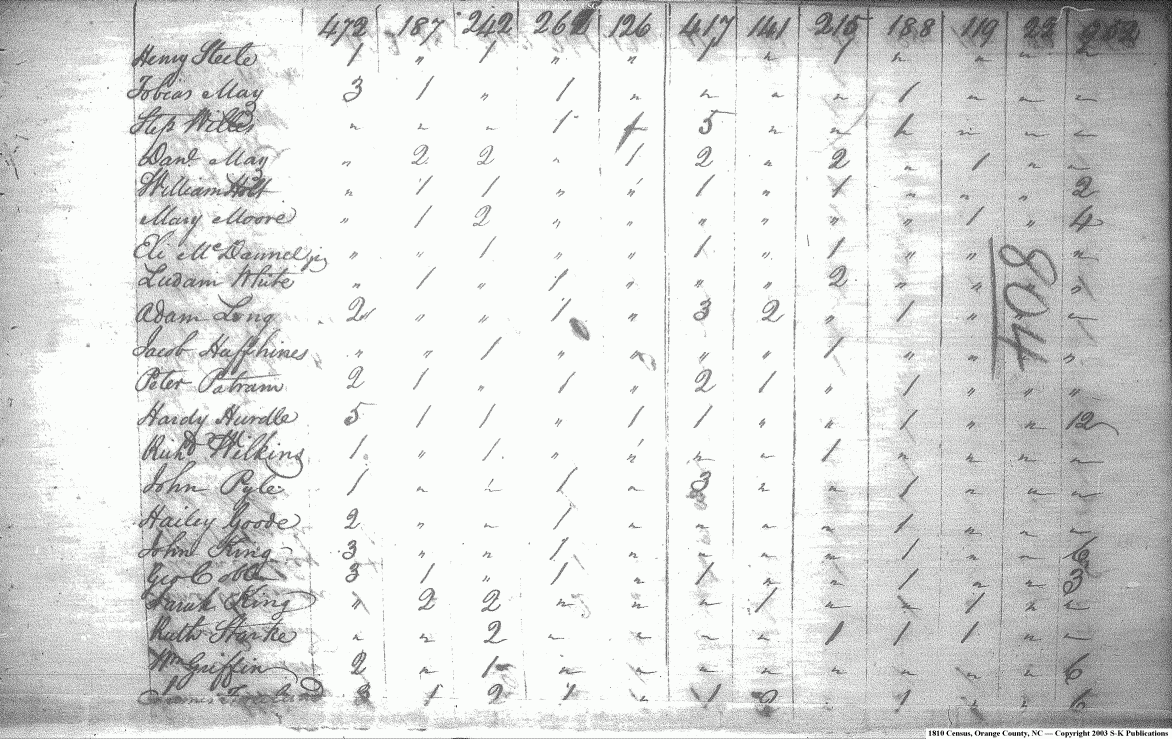 Publications - USGenWeb Archives
472 187 242 262 126 417 141 215 188 119 22 252
Henry Steele 1 " 1 " " 1 " 1 " " " 2
Tobias May 3 1 " 1 " " " " 1 " " "
Step " " " 1 1 5 " " 1 " " "
Danl May " 2 2 " 1 2 " 2 " 1 " "
William Holt " 1 1 " " 1 " 1 " " " 2
Mary Moore " 1 2 " " " " " " 1 " 4
Eli McDannel " " 1 " " 1 " 1 " " "
Ludam White " 1 " 1 " " " 2 " " "
Adam Long 2 " " 1 " 3 2 " 1 " "
804
Jacob Huffhines " " 1 " " " " 1 " " "
Peter Patram 2 1 " 1 " 2 1 " 1 " " "
Hardy Hurdle 5 1 1 " 1 1 " " 1 " " 12
Richd Wilkins 1 " 1 " " " " 1 " " " "
John Pyle 1 " " 1 " 3 " " 1 " " "
Hailey Goode 2 " " 1 " " " " 1 " " "
John King 3 " " 1 " " " " 1 " " 6
Geo Cobb 3 1 " 1 " 1 " " 1 " " 3
Sarah King " 2 2 " " " 1 " " 1 " "
Ruth Starke " " 2 " " " " 1 1 1 " "
Wm Griffin 2 " 1 " " " " " " " " 6
3 1 2 1 " 1 2 " 1 " " 6
1810 Census, Orange County, NC — Copyright 2003 S-K Publications